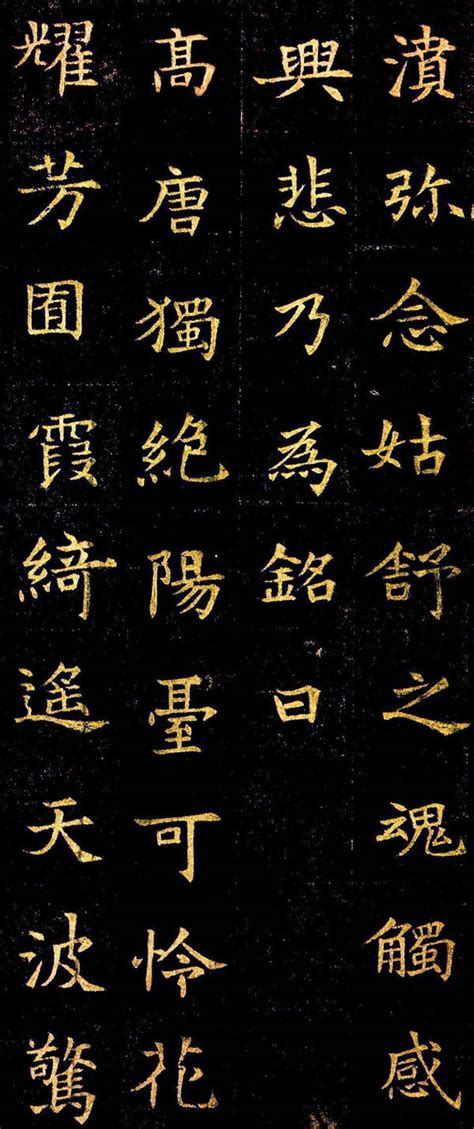 濆弥念姑舒之魂觸感
興悲乃為銘曰
髙唐獨絶陽臺可怜花
耀芳囿霞綺遙天波驚